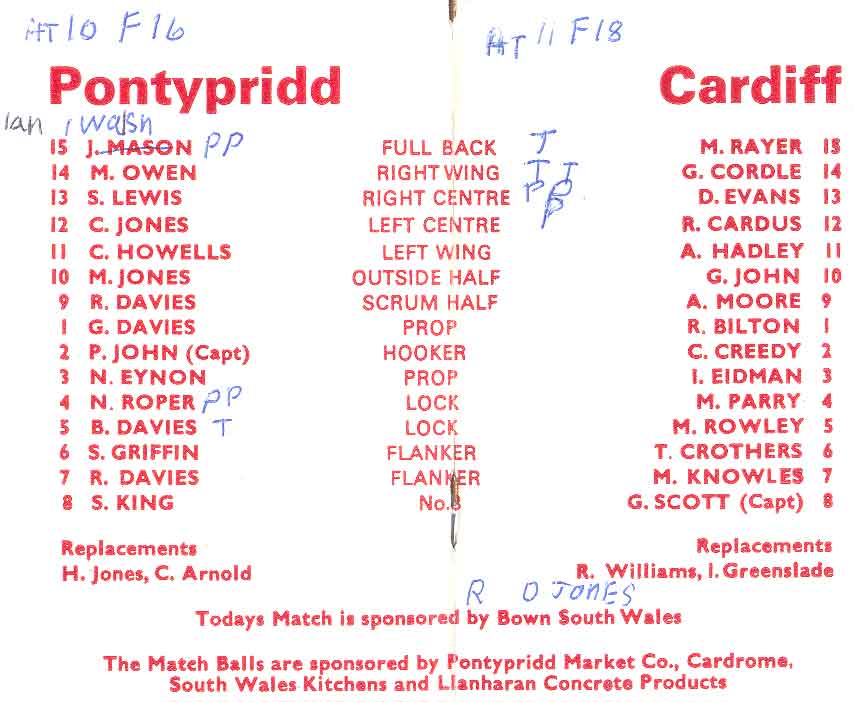 HT 10 F16
HT 11 F18
Pontypridd Cardiff
Ian Walsh
15 J. MASON PP FULL BACK T M. RAYER 15
14 M. OWEN RIGHT WING T T G. CORDLE 14
13 S. LEWIS RIGHT CENTRE P P D. EVANS 13
12 C. JONES LEFT CENTRE P R. CARDUS 12
11 C. HOWELLS LEFT WING A. HADLEY 11
10 M. JONES OUTSIDE HALF G. JOHN 10
9 R. DAVIES SCRUM HALF A. MOORE 9
1 G. DAVIES PROP R. BILTON 1
2 P. JOHN (Capt) HOOKER C. CREEDY 2
3 N. EYNON PROP I. EIDMAN 3
4 N. ROPER PP LOCK M. PARRY 4
5 B. DAVIES T LOCK M. ROWLEY 5
6 S. GRIFFIN FLANKER T. CROTHERS 6
7 R. DAVIES FLANKER M. KNOWLES 7
8 S. KING No.8 G. SCOTT (Capt) 8
Replacements Replacements
H. Jones, C. Arnold R. Williams, I. Greenslade
R D JONES
Todays Match is sponsored by Bown South Wales
The Match Balls are sponsored by Pontypridd Market Co., Cardrome,
South Wales Kitchens and Llanharan Concrete Products